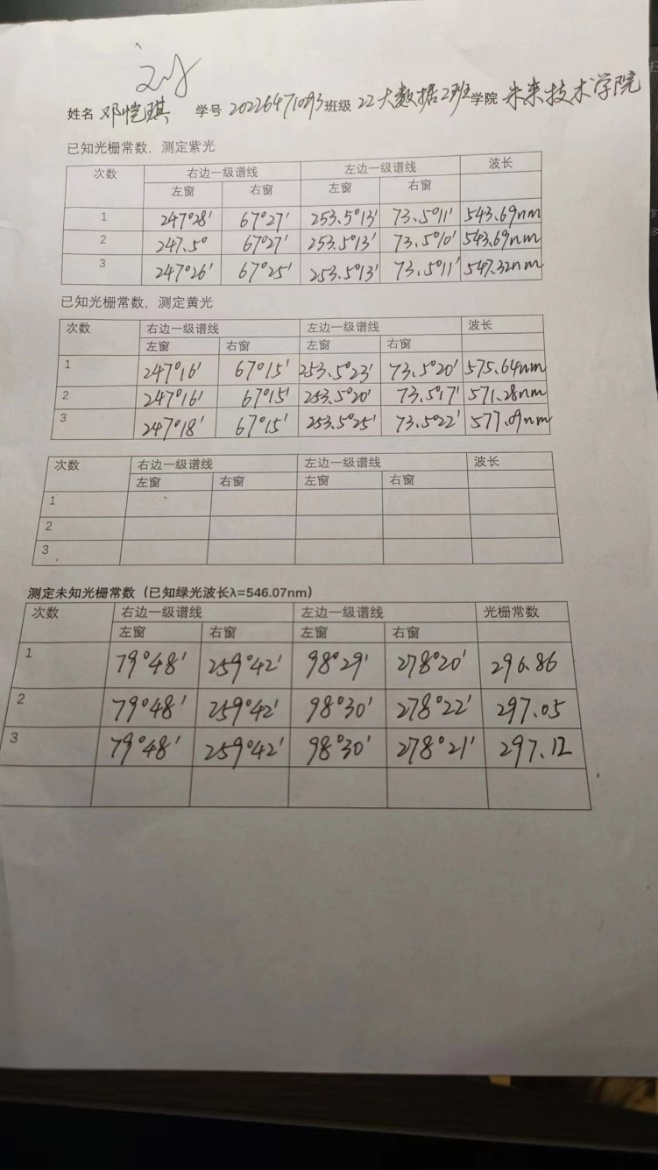 姓名 邓恺琪 学号 20226471093 班级 22大数据2班 学院 未来技术学院
已知光栅常数，测定紫光
次数 右边一级谱线 左边一级谱线 波长
左窗 右窗 左窗 右窗
1 247°28' 67°27' 253.5°13' 73.5°11' 543.69nm
2 247.5° 67°27' 253.5°13' 73.5°10' 543.69nm
3 247°26' 67°25' 253.5°13' 73.5°11' 547.32nm
已知光栅常数，测定黄光
次数 右边一级谱线 左边一级谱线 波长
左窗 右窗 左窗 右窗
1 247°16' 67°15' 253.5°23' 73.5°20' 575.64nm
2 247°16' 67°15' 253.5°20' 73.5°17' 571.28nm
3 247°18' 67°15' 253.5°25' 73.5°22' 577.09nm
次数 右边一级谱线 左边一级谱线 波长
左窗 右窗 左窗 右窗
1
2
3
测定未知光栅常数（已知绿光波长λ=546.07nm）
次数 右边一级谱线 左边一级谱线 光栅常数
左窗 右窗 左窗 右窗
1 79°48' 259°42' 98°29' 278°20' 296.86
2 79°48' 259°42' 98°30' 278°22' 297.05
3 79°48' 259°42' 98°30' 278°21' 297.12